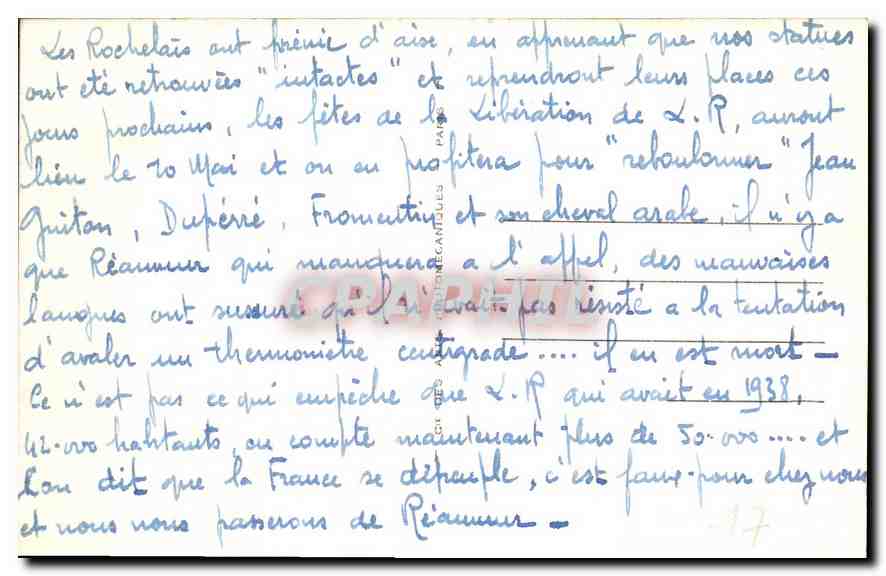 Les Rochelais ont frémi d'aise, en apprenant que nos statues
ont été retrouvées "intactes" et reprendront leurs places ces
jours prochains, les fêtes de la Libération de L.R, auront
lieu le 10 Mai et on en profitera pour "reboulonner" Jean
Guiton, Dupérré, Fromentin et son cheval arabe, il n'y a
que Réaumur qui manquera a l'appel, des mauvaises
langues ont susurré qu'il n'avait pas résisté a la tentation
d'avaler un thermomètre centigrade .... il en est mort -
Ce n'est pas ce qui empêche que L.R qui avait en 1938,
42.000 habitants, en compte maintenant plus de 50.000 .... et
l'on dit que la France se dépeuple, c'est faux-pour chez nous
et nous nous passerons de Réaumur -
17
CAPHTI
DES ARTS PHOTOMECANIQUES PARIS